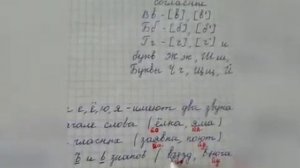 согласные
Вв - [в], [в']
Бб - [б], [б']
Гг - [г], [г'] и
букв Ж ж, Ш ш,
Буквы Ч ч, Щ щ, Й
е, ё, ю, я - имеют два звука
начале слова (ёлка, яма)
гласных (заявка, поют).
Ъ и ь знаков (въезд, вьюга